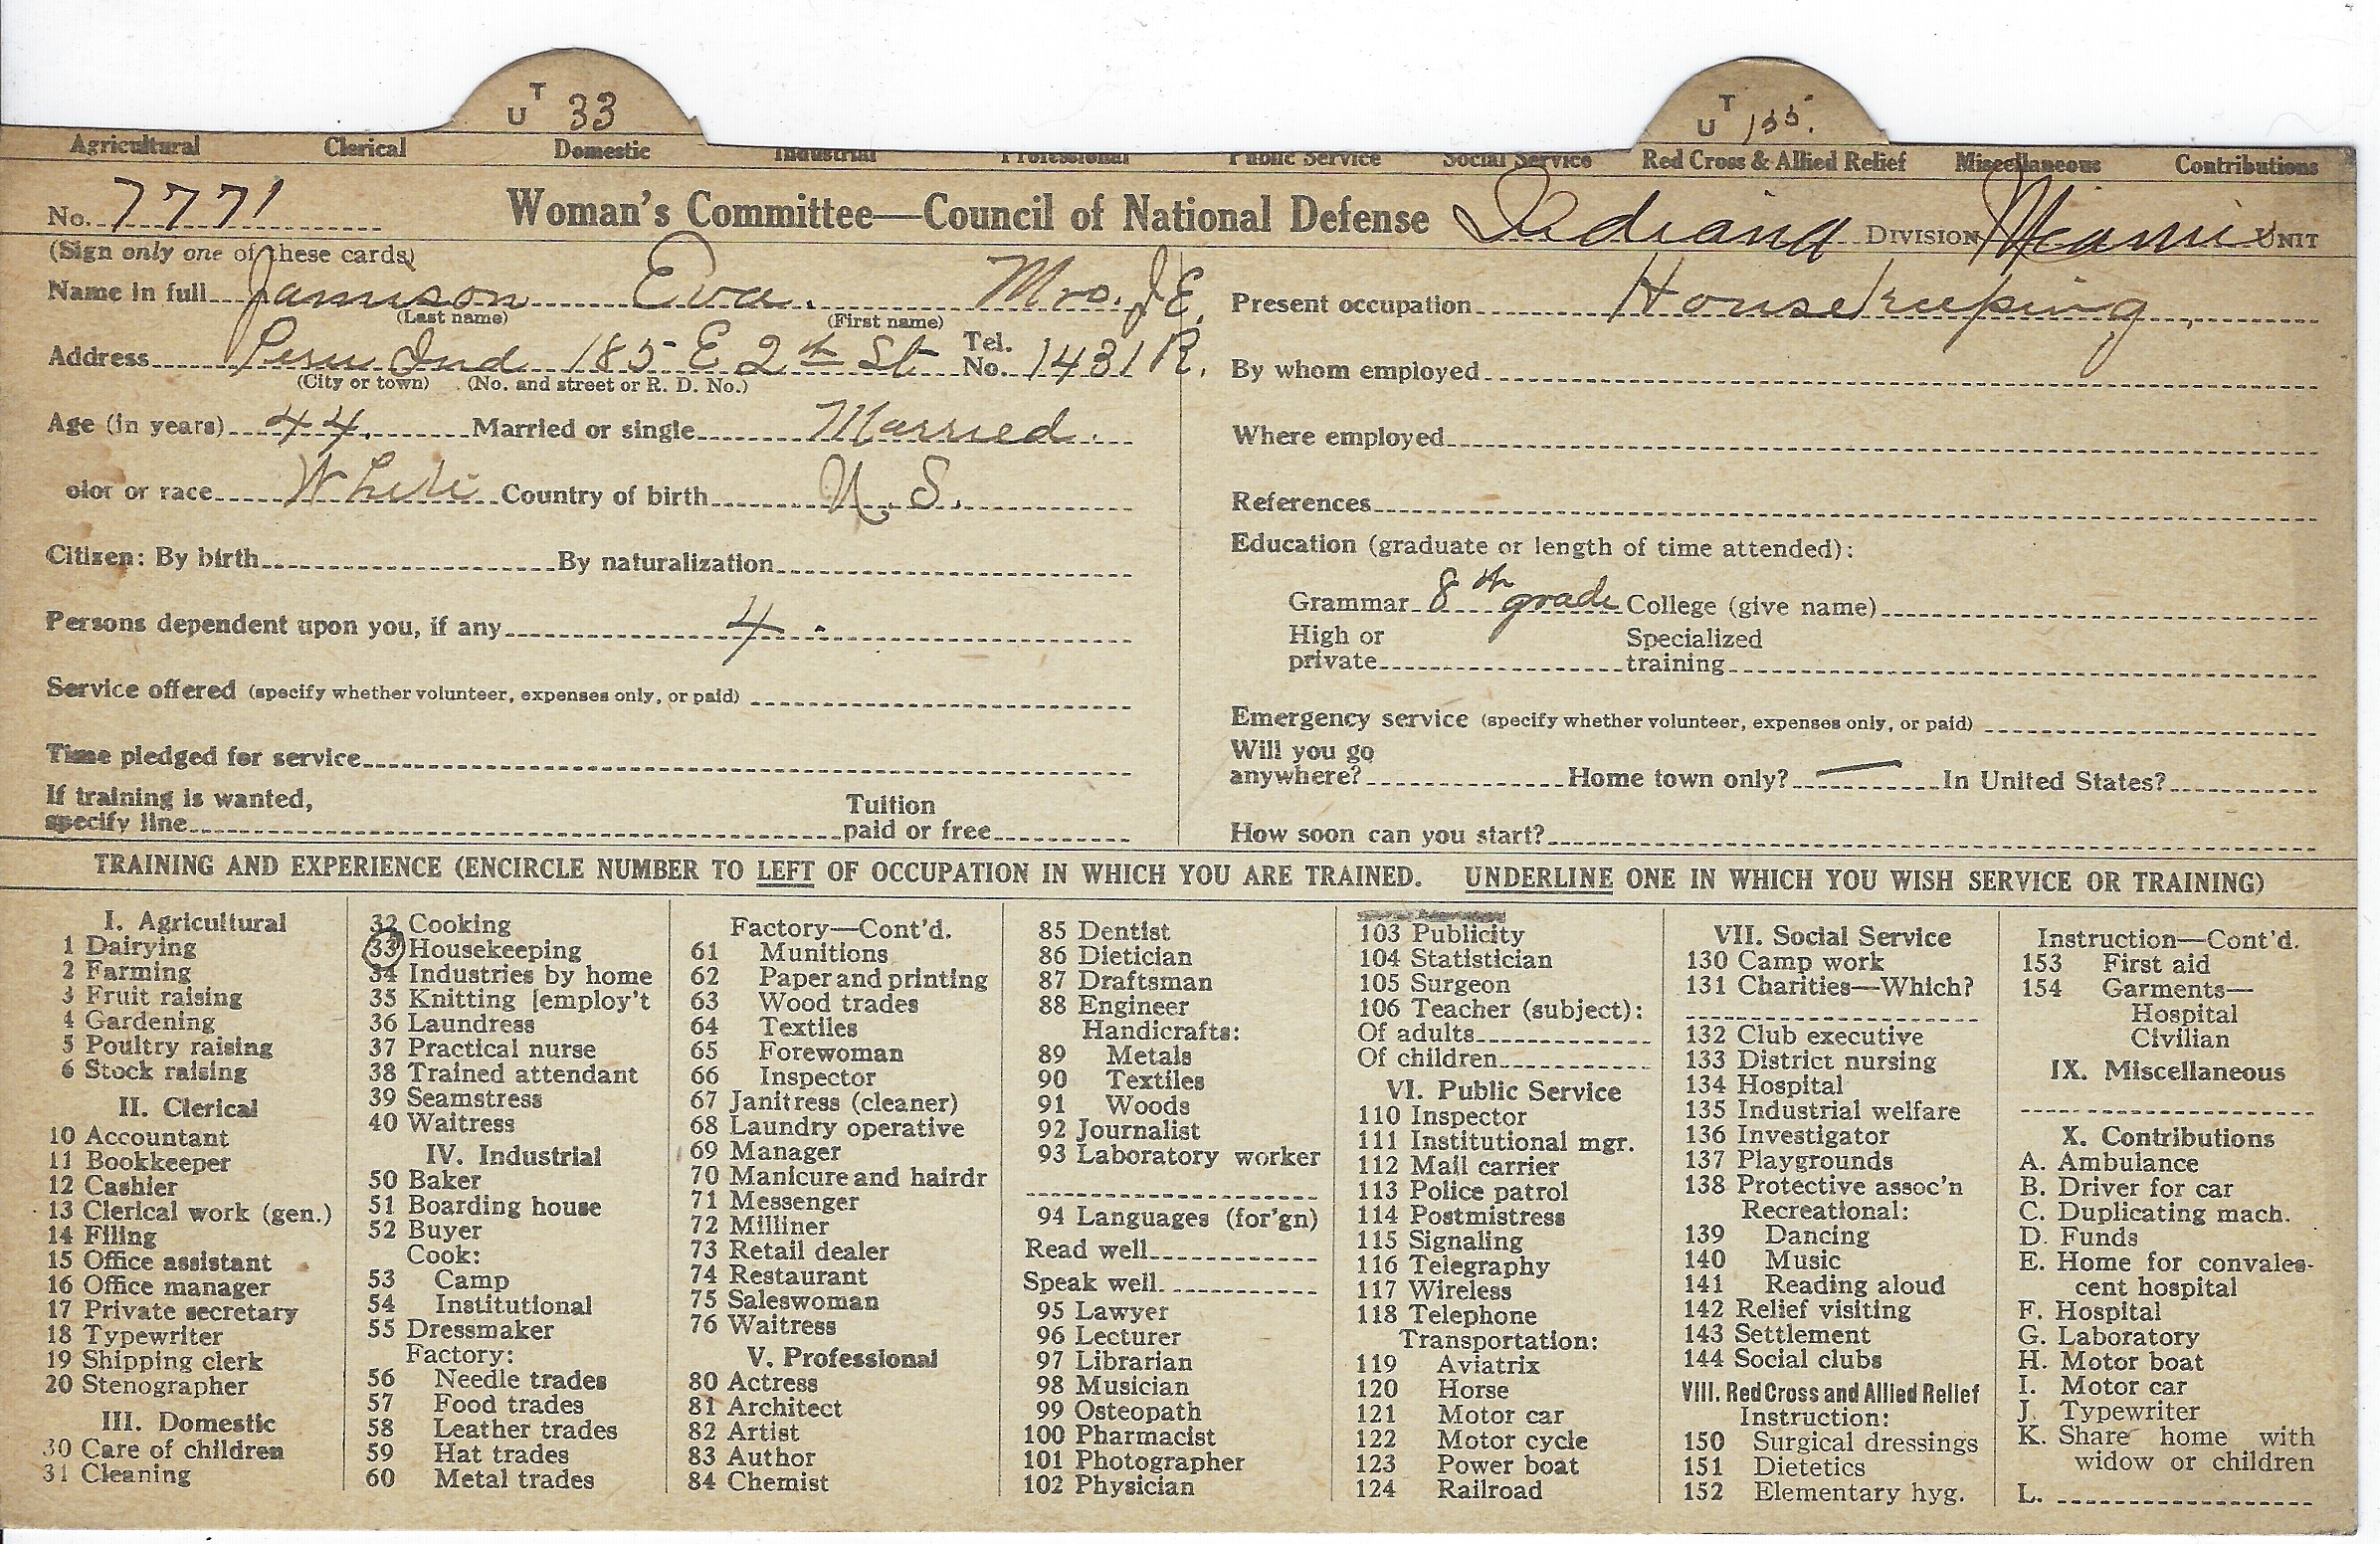 U T 33
U T 155.
Agricultural Clerical Domestic Industrial Professional Public Service Social Service Red Cross & Allied Relief Miscellaneous Contributions
No. 7771 Woman's Committee—Council of National Defense Indiana DIVISION Miami UNIT
(Sign only one of these cards)
Name in full Jamison Eva. Mrs. J E.
(Last name) (First name)
Address Peru Ind 185 E 2th St Tel. No. 1431 R.
(City or town) (No. and street or R. D. No.)
Age (in years) 44. Married or single Married.
olor or race White Country of birth U. S.
Citizen: By birth By naturalization
Persons dependent upon you, if any 4.
Service offered (specify whether volunteer, expenses only, or paid)
Time pledged for service
If training is wanted,
specify line
Tuition
paid or free
Present occupation Housekeeping
By whom employed
Where employed
References
Education (graduate or length of time attended):
Grammar 8th grade College (give name)
High or
private
Specialized
training
Emergency service (specify whether volunteer, expenses only, or paid)
Will you go
anywhere? Home town only? — In United States?
How soon can you start?
TRAINING AND EXPERIENCE (ENCIRCLE NUMBER TO LEFT OF OCCUPATION IN WHICH YOU ARE TRAINED. UNDERLINE ONE IN WHICH YOU WISH SERVICE OR TRAINING)
I. Agricultural
1 Dairying
2 Farming
3 Fruit raising
4 Gardening
5 Poultry raising
6 Stock raising
II. Clerical
10 Accountant
11 Bookkeeper
12 Cashier
13 Clerical work (gen.)
14 Filing
15 Office assistant
16 Office manager
17 Private secretary
18 Typewriter
19 Shipping clerk
20 Stenographer
III. Domestic
30 Care of children
31 Cleaning
32 Cooking
33 Housekeeping
34 Industries by home
35 Knitting [employ't
36 Laundress
37 Practical nurse
38 Trained attendant
39 Seamstress
40 Waitress
IV. Industrial
50 Baker
51 Boarding house
52 Buyer
Cook:
53 Camp
54 Institutional
55 Dressmaker
Factory:
56 Needle trades
57 Food trades
58 Leather trades
59 Hat trades
60 Metal trades
Factory—Cont'd.
61 Munitions
62 Paper and printing
63 Wood trades
64 Textiles
65 Forewoman
66 Inspector
67 Janitress (cleaner)
68 Laundry operative
69 Manager
70 Manicure and hairdr
71 Messenger
72 Milliner
73 Retail dealer
74 Restaurant
75 Saleswoman
76 Waitress
V. Professional
80 Actress
81 Architect
82 Artist
83 Author
84 Chemist
85 Dentist
86 Dietician
87 Draftsman
88 Engineer
Handicrafts:
89 Metals
90 Textiles
91 Woods
92 Journalist
93 Laboratory worker
94 Languages (for'gn)
Read well
Speak well
95 Lawyer
96 Lecturer
97 Librarian
98 Musician
99 Osteopath
100 Pharmacist
101 Photographer
102 Physician
103 Publicity
104 Statistician
105 Surgeon
106 Teacher (subject):
Of adults
Of children
VI. Public Service
110 Inspector
111 Institutional mgr.
112 Mail carrier
113 Police patrol
114 Postmistress
115 Signaling
116 Telegraphy
117 Wireless
118 Telephone
Transportation:
119 Aviatrix
120 Horse
121 Motor car
122 Motor cycle
123 Power boat
124 Railroad
VII. Social Service
130 Camp work
131 Charities—Which?
132 Club executive
133 District nursing
134 Hospital
135 Industrial welfare
136 Investigator
137 Playgrounds
138 Protective assoc'n
Recreational:
139 Dancing
140 Music
141 Reading aloud
142 Relief visiting
143 Settlement
144 Social clubs
VIII. Red Cross and Allied Relief
Instruction:
150 Surgical dressings
151 Dietetics
152 Elementary hyg.
Instruction—Cont'd.
153 First aid
154 Garments—
Hospital
Civilian
IX. Miscellaneous
X. Contributions
A. Ambulance
B. Driver for car
C. Duplicating mach.
D. Funds
E. Home for convales-
cent hospital
F. Hospital
G. Laboratory
H. Motor boat
I. Motor car
J. Typewriter
K. Share home with
widow or children
L.